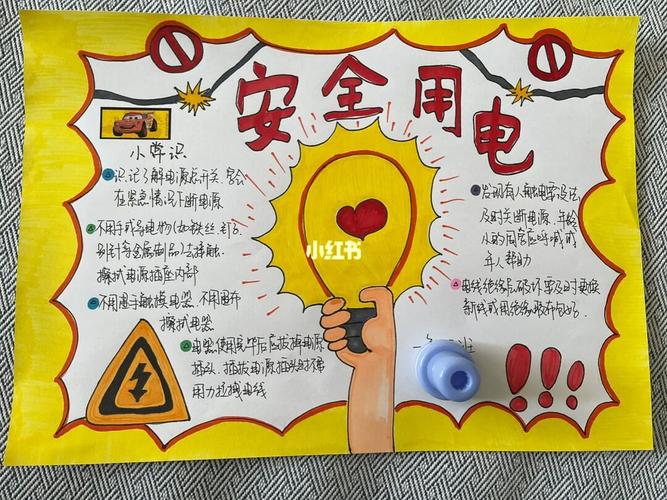 安全用电
小常识
认识了解电源总开关,学会
在紧急情况下断电源
不用手或导电物(如铁丝、钉子、
别针等金属制品)去接触、
探试电源插座内部
不用湿手触摸电器,不用湿布
擦拭电器
电器使用完毕后应拔掉电源
插头,插拔电源插头时不要
用力拉拽电线
小红书
发现有人触电要设法
及时关断电源,年龄
小的同学应呼喊成
年人帮助
电线绝缘层破坏要及时更换
新线或用绝缘胶布包好.
班
!!!